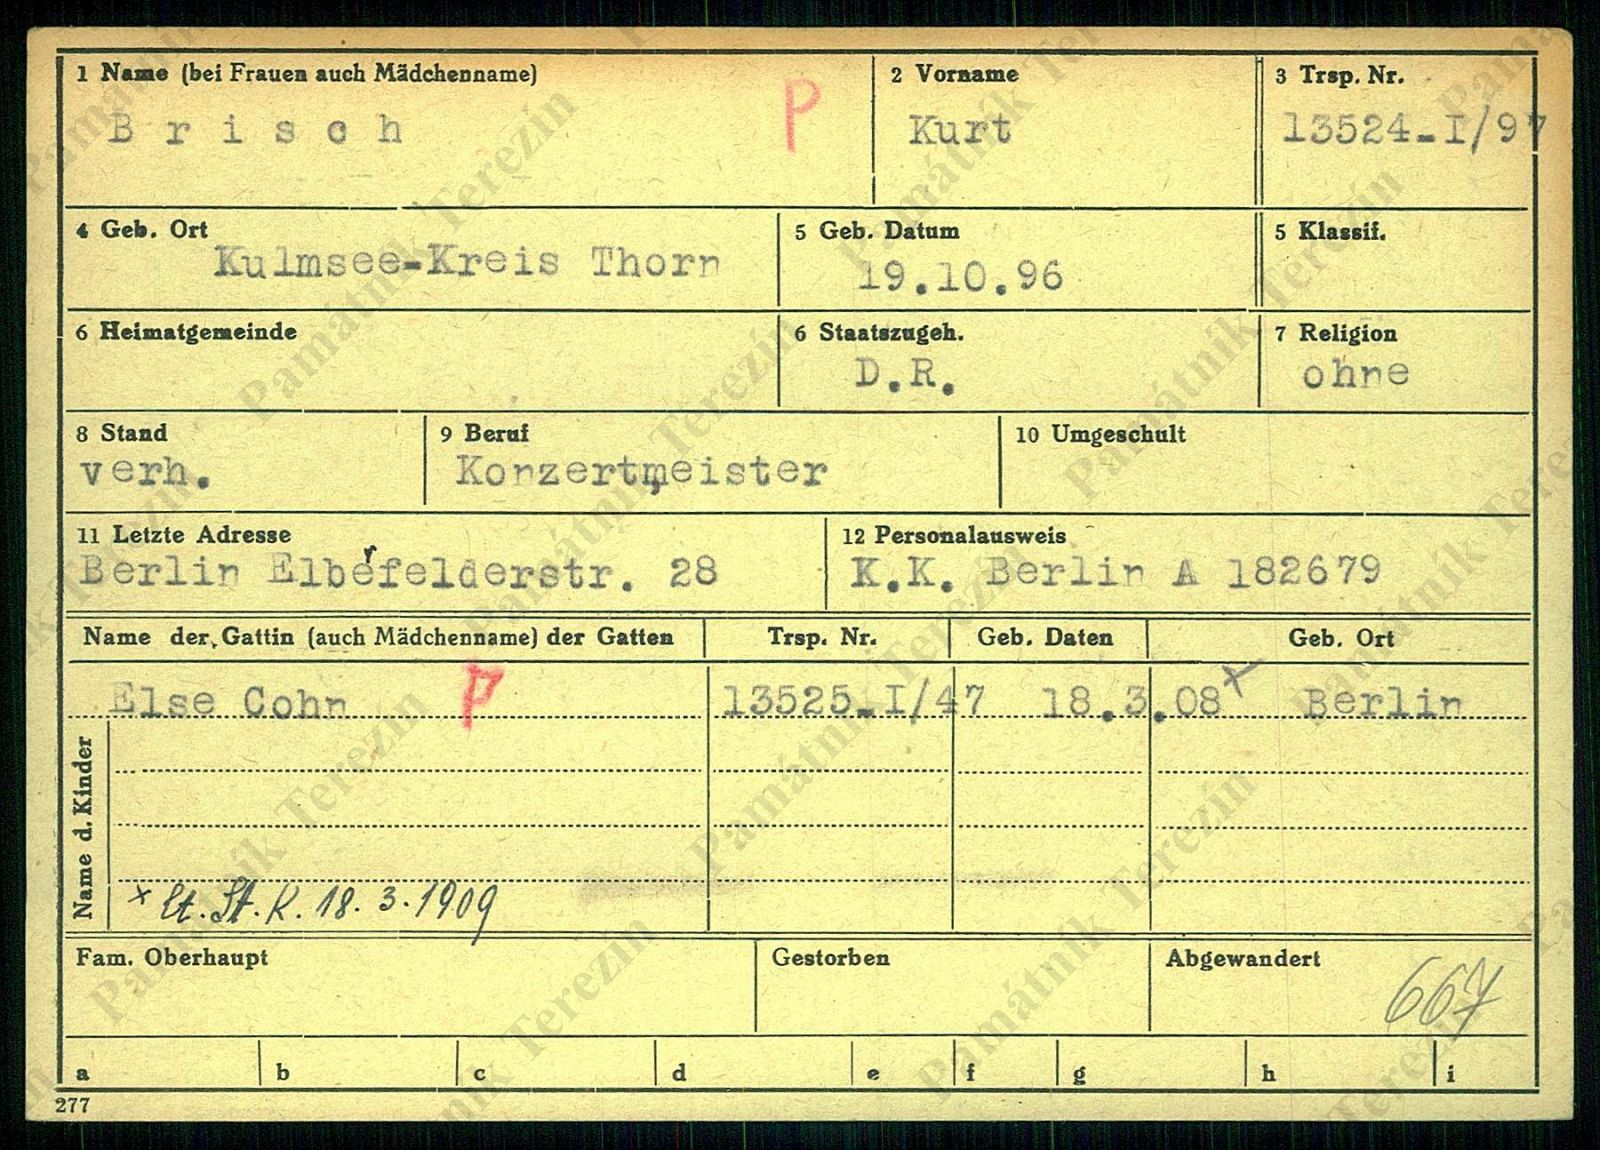 1 Name (bei Frauen auch Mädchenname)
Brisch
P
2 Vorname
Kurt
3 Trsp. Nr.
13524-I/97
4 Geb. Ort
Kulmsee-Kreis Thorn
5 Geb. Datum
19.10.96
5 Klassif.
6 Heimatgemeinde
6 Staatszugeh.
D.R.
7 Religion
ohne
8 Stand
verh.
9 Beruf
Konzertmeister
10 Umgeschult
11 Letzte Adresse
Berlin Elberfelderstr. 28
12 Personalausweis
K.K. Berlin A 182679
Name der Gattin (auch Mädchenname) der Gatten
Trsp. Nr.
Geb. Daten
Geb. Ort
Else Cohn P 13525-I/47 18.3.08 x Berlin
Name d. Kinder
x lt. St. K. 18.3.1909
Fam. Oberhaupt
Gestorben
Abgewandert
667
a b c d e f g h i
277
Památník Terezín